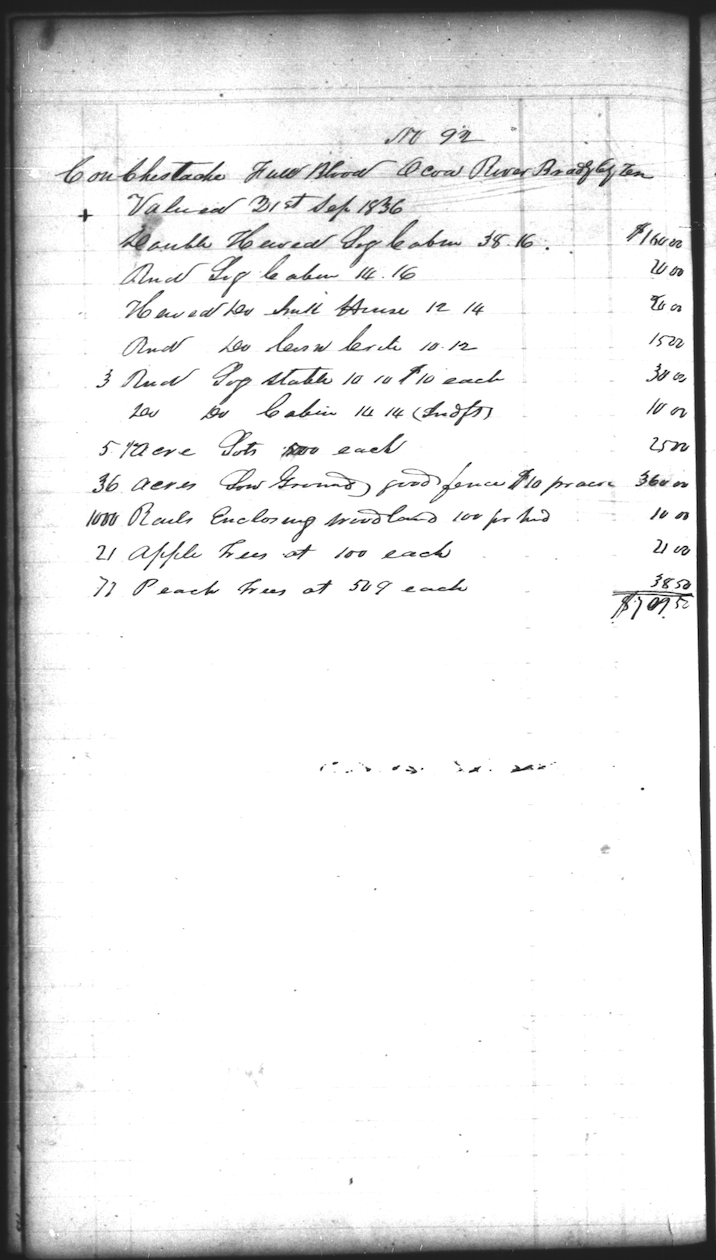 No 92
Conchestache Full Blood Ocoa River Bradly Cty Ten
+ Valued 21st Sep 1836
Double Hewed Log Cabin 38.16. $160 00
Rnd Log Cabin 14.16 20 00
Hewed Do Smk House 12 14 20 00
Rnd Do Corn Crib 10.12 15 00
3 Rnd Log Stable 10 10 $10 each 30 00
Do Do Cabin 14 14 (Indft) 10 00
5 1/4 Acre Lots 500 each 25 00
36 acres Low Ground good fence $10 pr acre 360 00
1000 Rails Enclosing woodland 100 pr hnd 10 00
21 Apple Trees at 100 each 21 00
77 Peach Trees at 50¢ each 38 50
$709 50